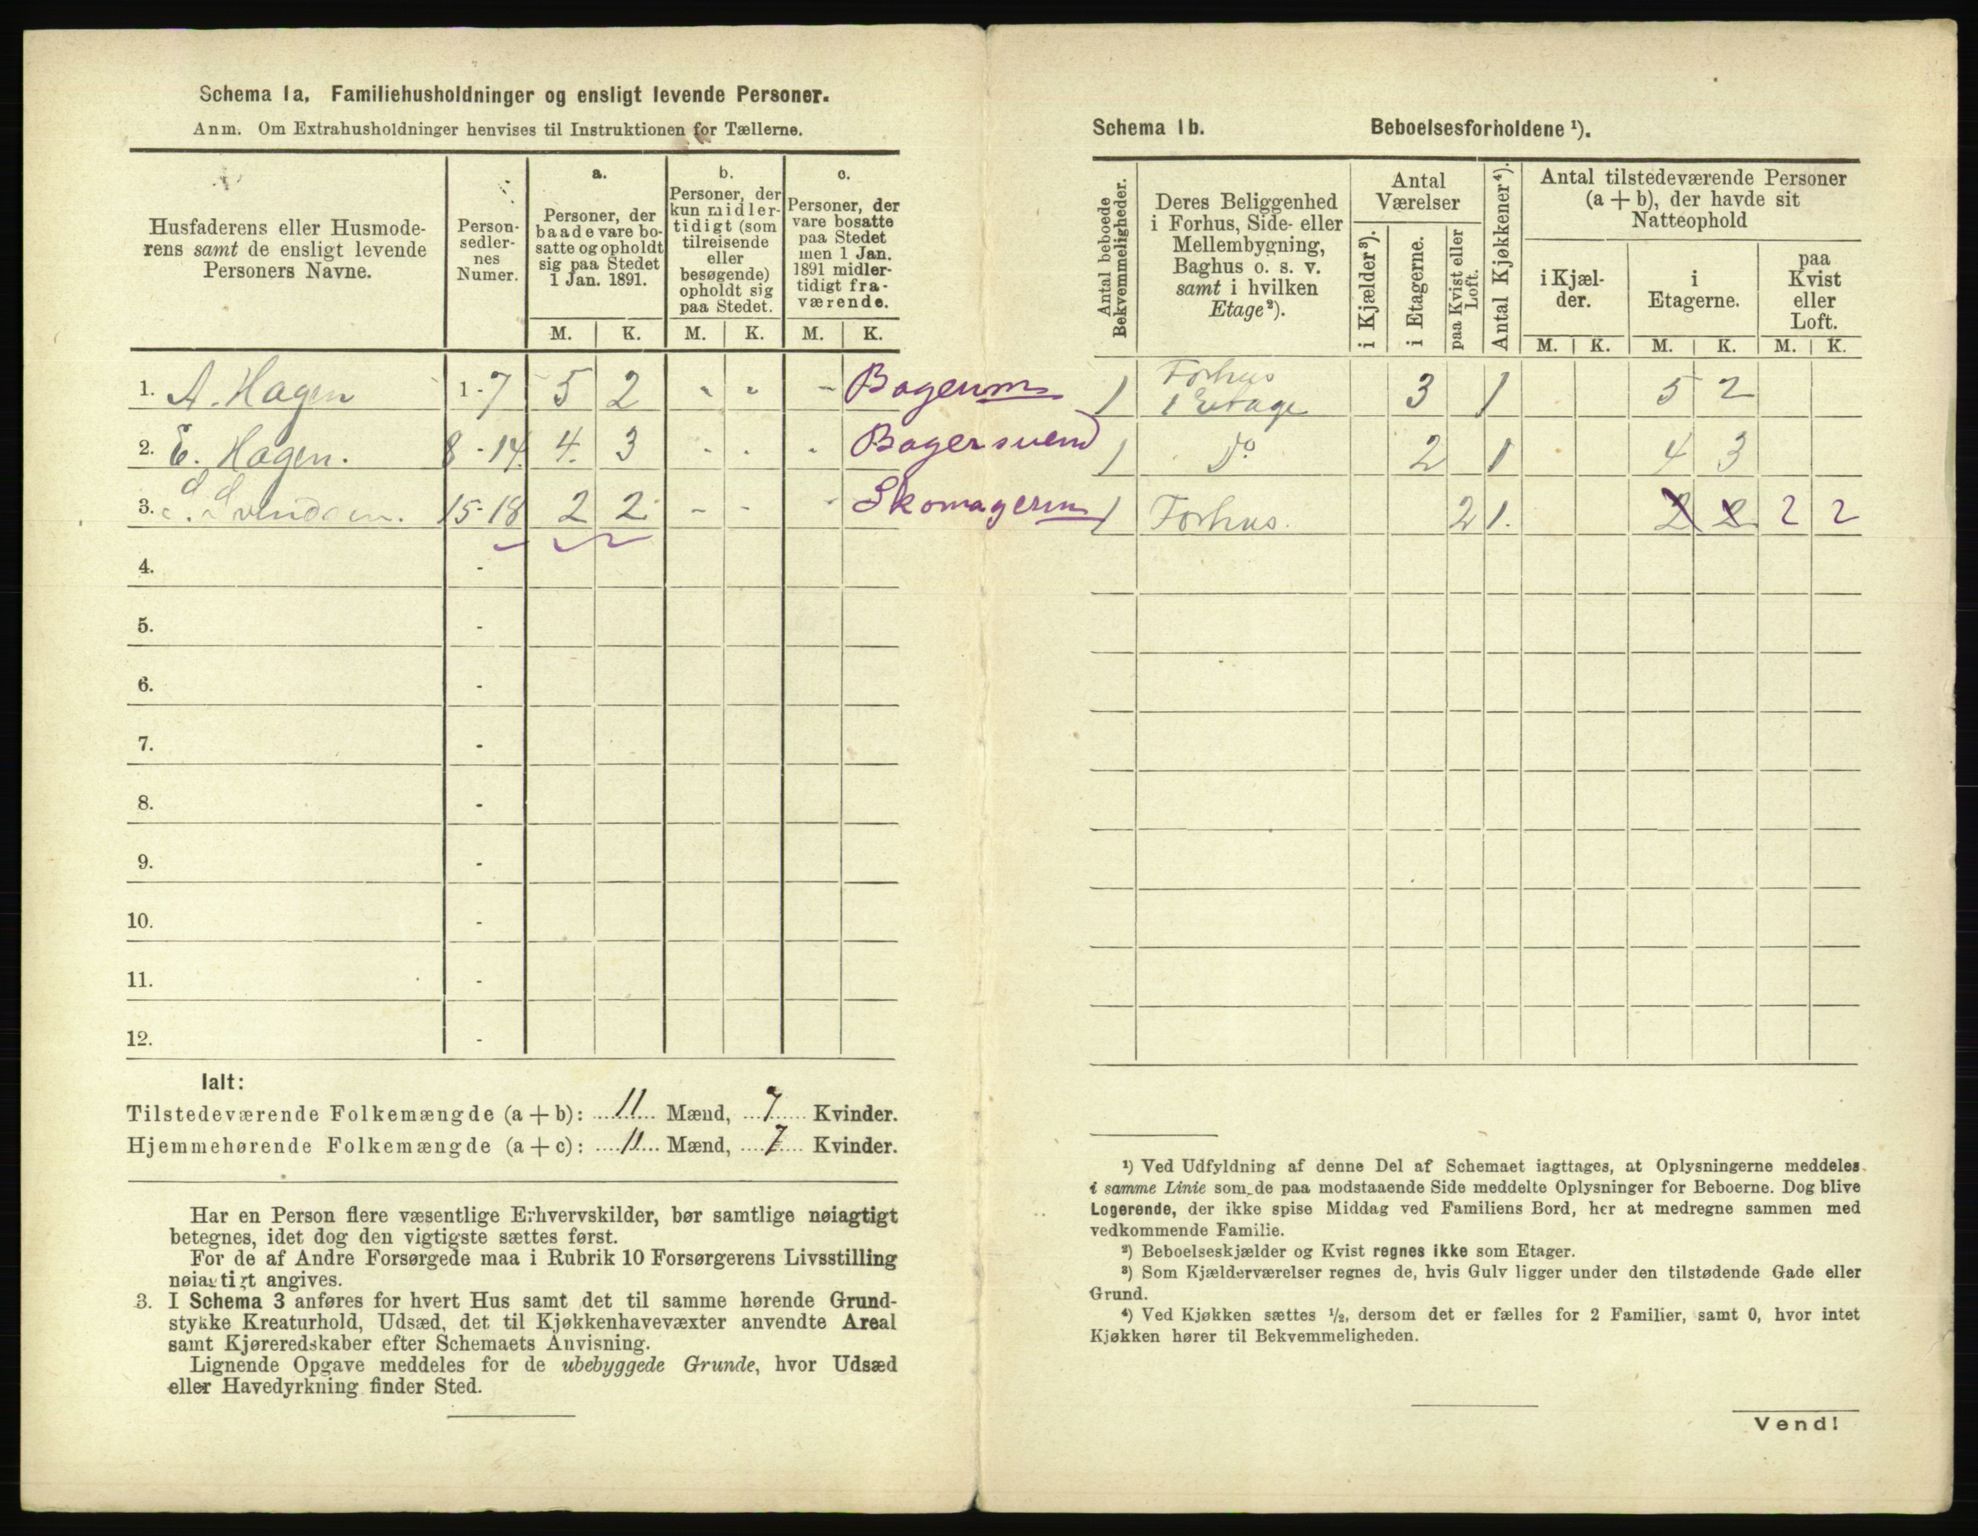 Schema 1a. Familiehusholdninger og ensligt levende Personer.
Anm. Om Extrahusholdninger henvises til Instruktionen for Tællerne.
Husfaderens eller Husmode-
rens samt de ensligt levende
Personers Navne.
Person-
sedler-
nes
Numer.
a.
Personer, der
baade vare bo-
satte og opholdt
sig paa Stedet
1 Jan. 1891.
b.
Personer, der
kun midler-
tidigt (som
tilreisende
eller
besøgende)
opholdt sig
paa Stedet.
c.
Personer, der
vare bosatte
paa Stedet
men 1 Jan.
1891 midler-
tidigt fra-
værende.
M. K. M. K. M. K.
1. A. Hagen 1-7 5 2 - - - Bagerm
2. E. Hagen. 8-14. 4. 3 - - - Bagersvend
3. S. Svendsen. 15-18 2 2 - - - Skomagerm
4. -
5. -
6. -
7. -
8. -
9. -
10. -
11. -
12. -
Ialt:
Tilstedeværende Folkemængde (a + b): 11 Mænd, 7 Kvinder.
Hjemmehørende Folkemængde (a + c): 11 Mænd, 7 Kvinder.
Har en Person flere væsentlige Erhvervskilder, bør samtlige nøiagtigt
betegnes, idet dog den vigtigste sættes først.
For de af Andre Forsørgede maa i Rubrik 10 Forsørgerens Livsstilling
nøiagtigt angives.
3. I Schema 3 anføres for hvert Hus samt det til samme hørende Grund-
stykke Kreaturhold, Udsæd, det til Kjøkkenhavevæxter anvendte Areal
samt Kjøreredskaber efter Schemaets Anvisning.
Lignende Opgave meddeles for de ubebyggede Grunde, hvor Udsæd
eller Havedyrkning finder Sted.
Schema 1b. Beboelsesforholdene ¹).
Antal beboede
Bekvemmeligheder.
Deres Beliggenhed
i Forhus, Side- eller
Mellembygning,
Baghus o. s. v.
samt i hvilken
Etage²).
Antal
Værelser
i Kjælder³).
i Etagerne.
paa Kvist eller
Loft.
Antal Kjøkkener⁴).
Antal tilstedeværende Personer
(a + b), der havde sit
Natteophold
i Kjæl-
der.
i
Etagerne.
paa
Kvist
eller
Loft.
M. K. M. K. M. K.
1 Forhus
1 Etage 3 1 5 2
1 do 2 1 4 3
1 Forhus. 2 1. 2 2 2 2
¹) Ved Udfyldning af denne Del af Schemaet iagttages, at Oplysningerne meddeles
i samme Linie som de paa modstaaende Side meddelte Oplysninger for Beboerne. Dog blive
Logerende, der ikke spise Middag ved Familiens Bord, her at medregne sammen med
vedkommende Familie.
²) Beboelseskjælder og Kvist regnes ikke som Etager.
³) Som Kjælderværelser regnes de, hvis Gulv ligger under den tilstødende Gade eller
Grund.
⁴) Ved Kjøkken sættes ½, dersom det er fælles for 2 Familier, samt 0, hvor intet
Kjøkken hører til Bekvemmeligheden.
Vend!